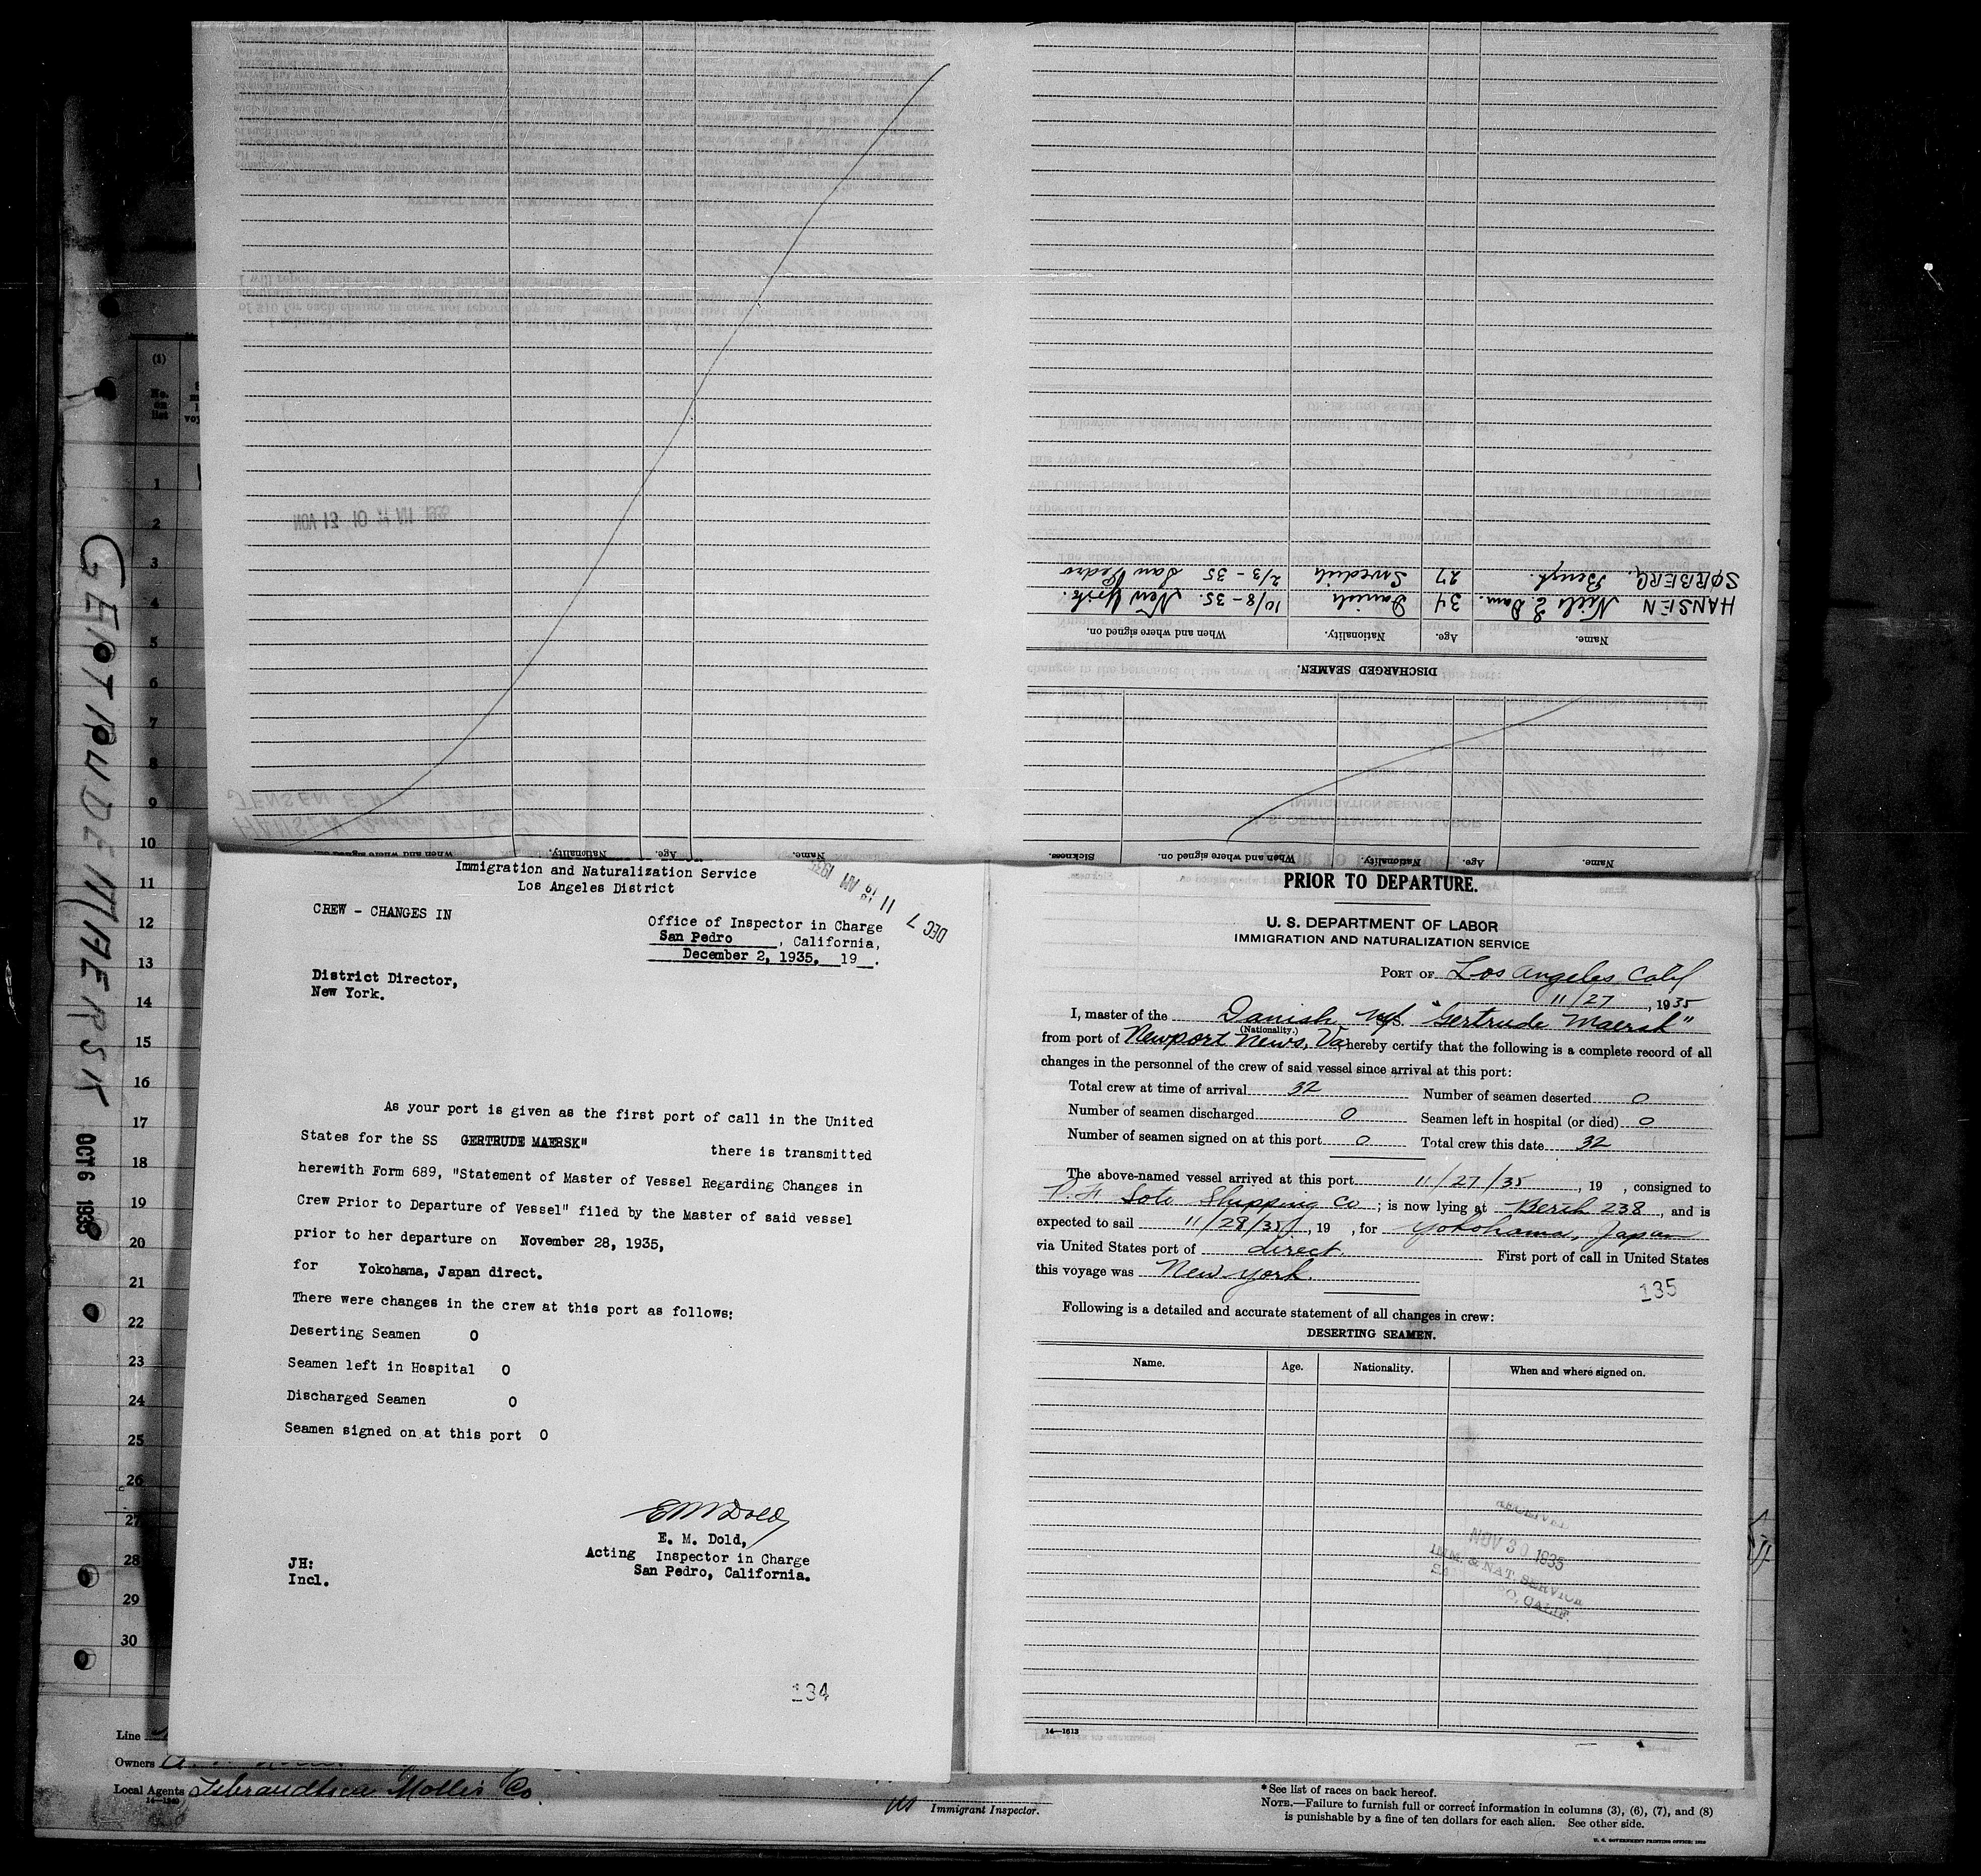 (1)
No.
on
list
1
2
3
4
5
6
7
8
9
10
11
12
13
14
15
16
17
18
19
20
21
22
23
24
25
26
27
28
29
30
GERTRUDE MAERSK OCT 6 1935
Line
Owners
Local Agents
Immigrant Inspector.
*See list of races on back hereof.
NOTE.—Failure to furnish full or correct information in columns (3), (6), (7), and (8)
is punishable by a fine of ten dollars for each alien. See other side.
U. S. GOVERNMENT PRINTING OFFICE
NOV 13 10 AM 1935
Name. Age. Nationality. When and where signed on.
Name. Age. Nationality. When and where signed on. Sickness.
DISCHARGED SEAMEN.
Name. Age. Nationality. When and where signed on.
HANSEN Niels E. Dam. 34 Danish 10/8-35. New York.
SØRBERG, Bengt. 27 Swedish 2/3-35 San Pedro
Immigration and Naturalization Service
Los Angeles District
DEC 7 11 AM 1935
CREW - CHANGES IN
Office of Inspector in Charge
San Pedro, California,
December 2, 1935, 19 .
District Director,
New York.
As your port is given as the first port of call in the United
States for the SS GERTRUDE MAERSK" there is transmitted
herewith Form 689, "Statement of Master of Vessel Regarding Changes in
Crew Prior to Departure of Vessel" filed by the Master of said vessel
prior to her departure on November 28, 1935,
for Yokohama, Japan direct.
There were changes in the crew at this port as follows:
Deserting Seamen 0
Seamen left in Hospital 0
Discharged Seamen 0
Seamen signed on at this port 0
E M Dold
E. M. Dold,
Acting Inspector in Charge
San Pedro, California.
JH:
Incl.
134
PRIOR TO DEPARTURE.
U. S. DEPARTMENT OF LABOR
IMMIGRATION AND NATURALIZATION SERVICE
PORT OF Los Angeles, Calif
11/27, 1935
I, master of the Danish M/S. "Gertrude Maersk"
(Nationality.)
from port of Newport News, Va, hereby certify that the following is a complete record of all
changes in the personnel of the crew of said vessel since arrival at this port:
Total crew at time of arrival 32 Number of seamen deserted 0
Number of seamen discharged 0 Seamen left in hospital (or died) 0
Number of seamen signed on at this port 0 Total crew this date 32
The above-named vessel arrived at this port 11/27/35, 19 , consigned to
Soto Shipping Co; is now lying at Berth 238, and is
expected to sail 11/28/35, 19 , for Yokohama, Japan
via United States port of direct. First port of call in United States
this voyage was New York.
135
Following is a detailed and accurate statement of all changes in crew:
DESERTING SEAMEN.
Name. Age. Nationality. When and where signed on.
RECEIVED
NOV 30 1935
IMM. & NAT. SERVICE
CALIF.
14—1613